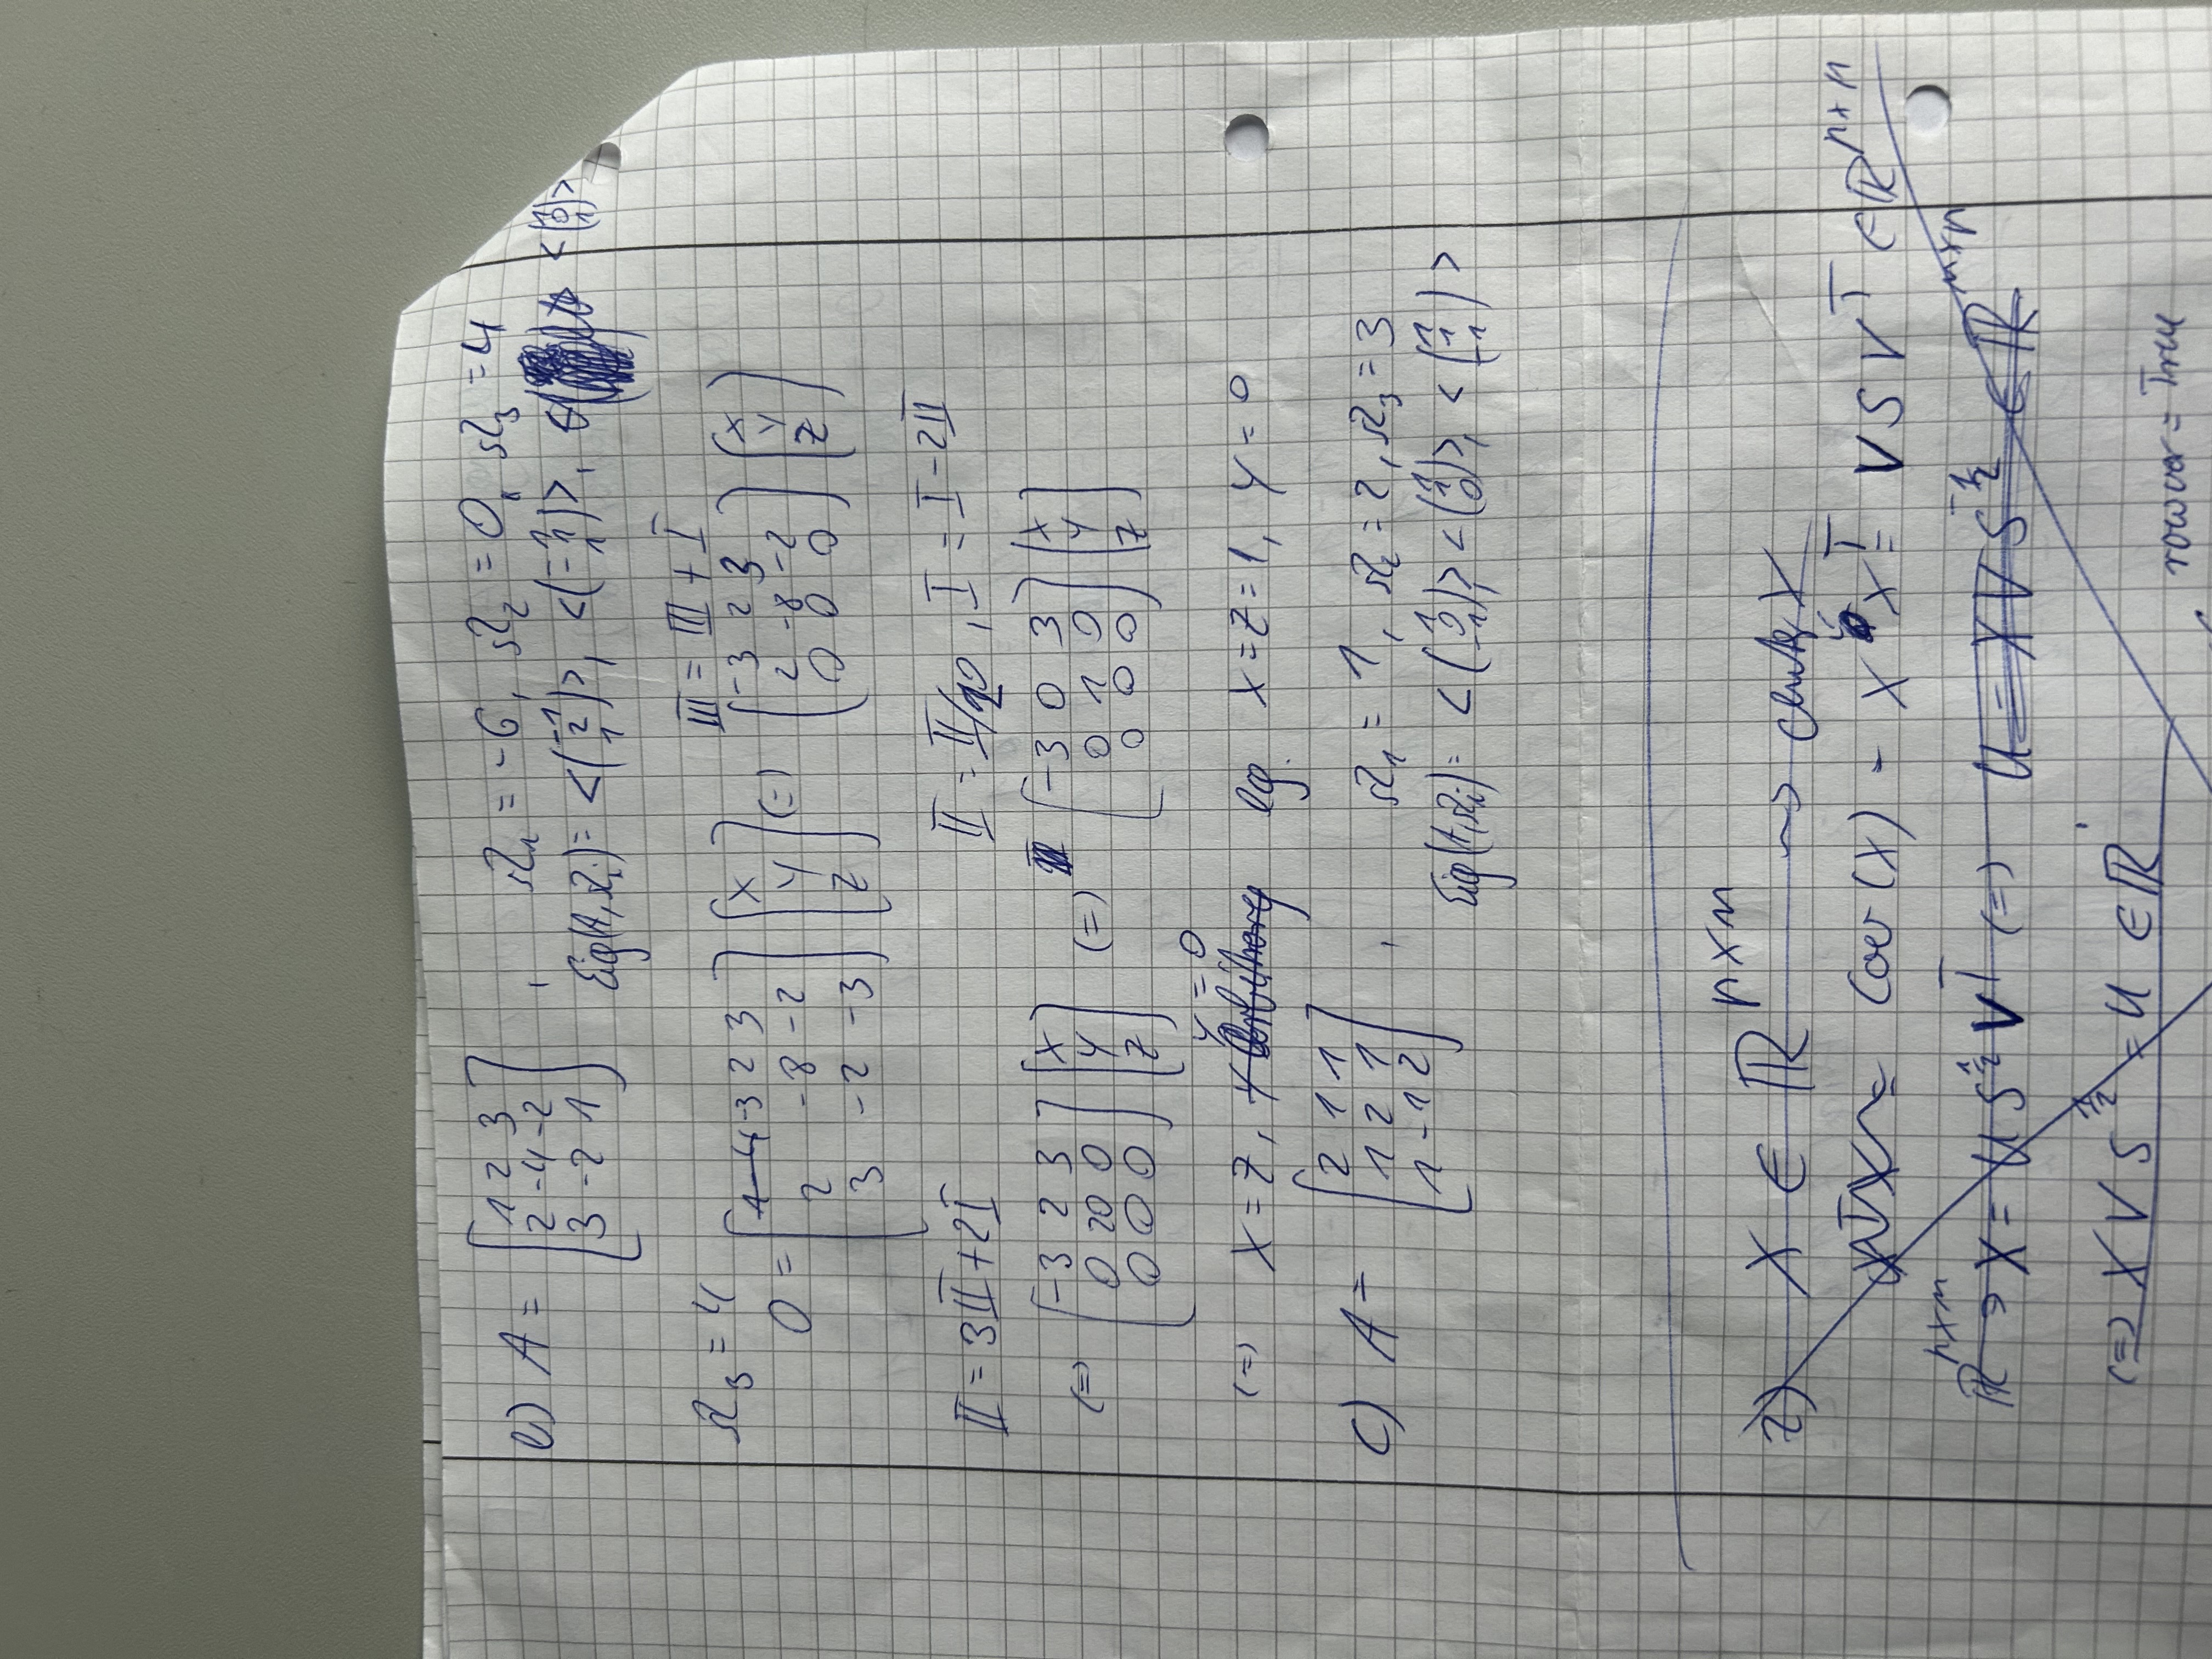 e) A = [1 2 3; 2 -4 -2; 3 -2 1] , Ω₁ = -6, Ω₂ = 0, Ω₃ = 4
Eig(A,Ωᵢ) = <(-1 2 1)>, <(-1 -1 1)>, <(1 0 1)>
Ω₃ = 4
III = III + I
0 = [-3 2 3; 2 -8 -2; 3 -2 -3] [x y z] (=) [-3 2 3; 2 -8 -2; 0 0 0] [x y z]
II = 3II + 2I
II = II/20 , I = I - 2II
(=) [-3 2 3; 0 20 0; 0 0 0] [x y z] (=) [-3 0 3; 0 1 0; 0 0 0] [x y z]
y = 0
(=) x = z, y arbitrary eg. x = z = 1, y = 0
c) A = [2 1 1; 1 2 1; 1 -1 2] , Ω₁ = 1, Ω₂ = 2, Ω₃ = 3
Eig(A,Ωᵢ) = <(1 0 -1)>, <(1 1 0)>, <(1 1 -1)>
2) X ∈ ℝⁿˣᵐ ⇝ X
XᵀX = Cov(X) - X Xᵀ = V S Vᵀ ∈ ℝⁿˣⁿ
ℝⁿˣᵐ ∋ X = U S^½ Vᵀ (=) U = X V S^-½ ∈ ℝᵐˣⁿ
(=) X V S^½ = U ∈ ℝ
rowvar = True